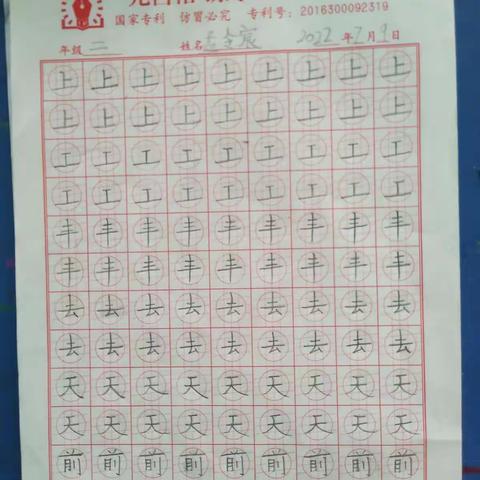 国家专利 仿冒必究 专利号：2016300092319
年级 二 姓名 孟金宸 2022年7月9日
上上上上上上上上上
上上上上上上上上上
工工工工工工工工工
工工工工工工工工工
丰丰丰丰丰丰丰丰丰
丰丰丰丰丰丰丰丰丰
去去去去去去去去去
去去去去去去去去去
天天天天天天天天天
天天天天天天天天天
前前前前前前前前前